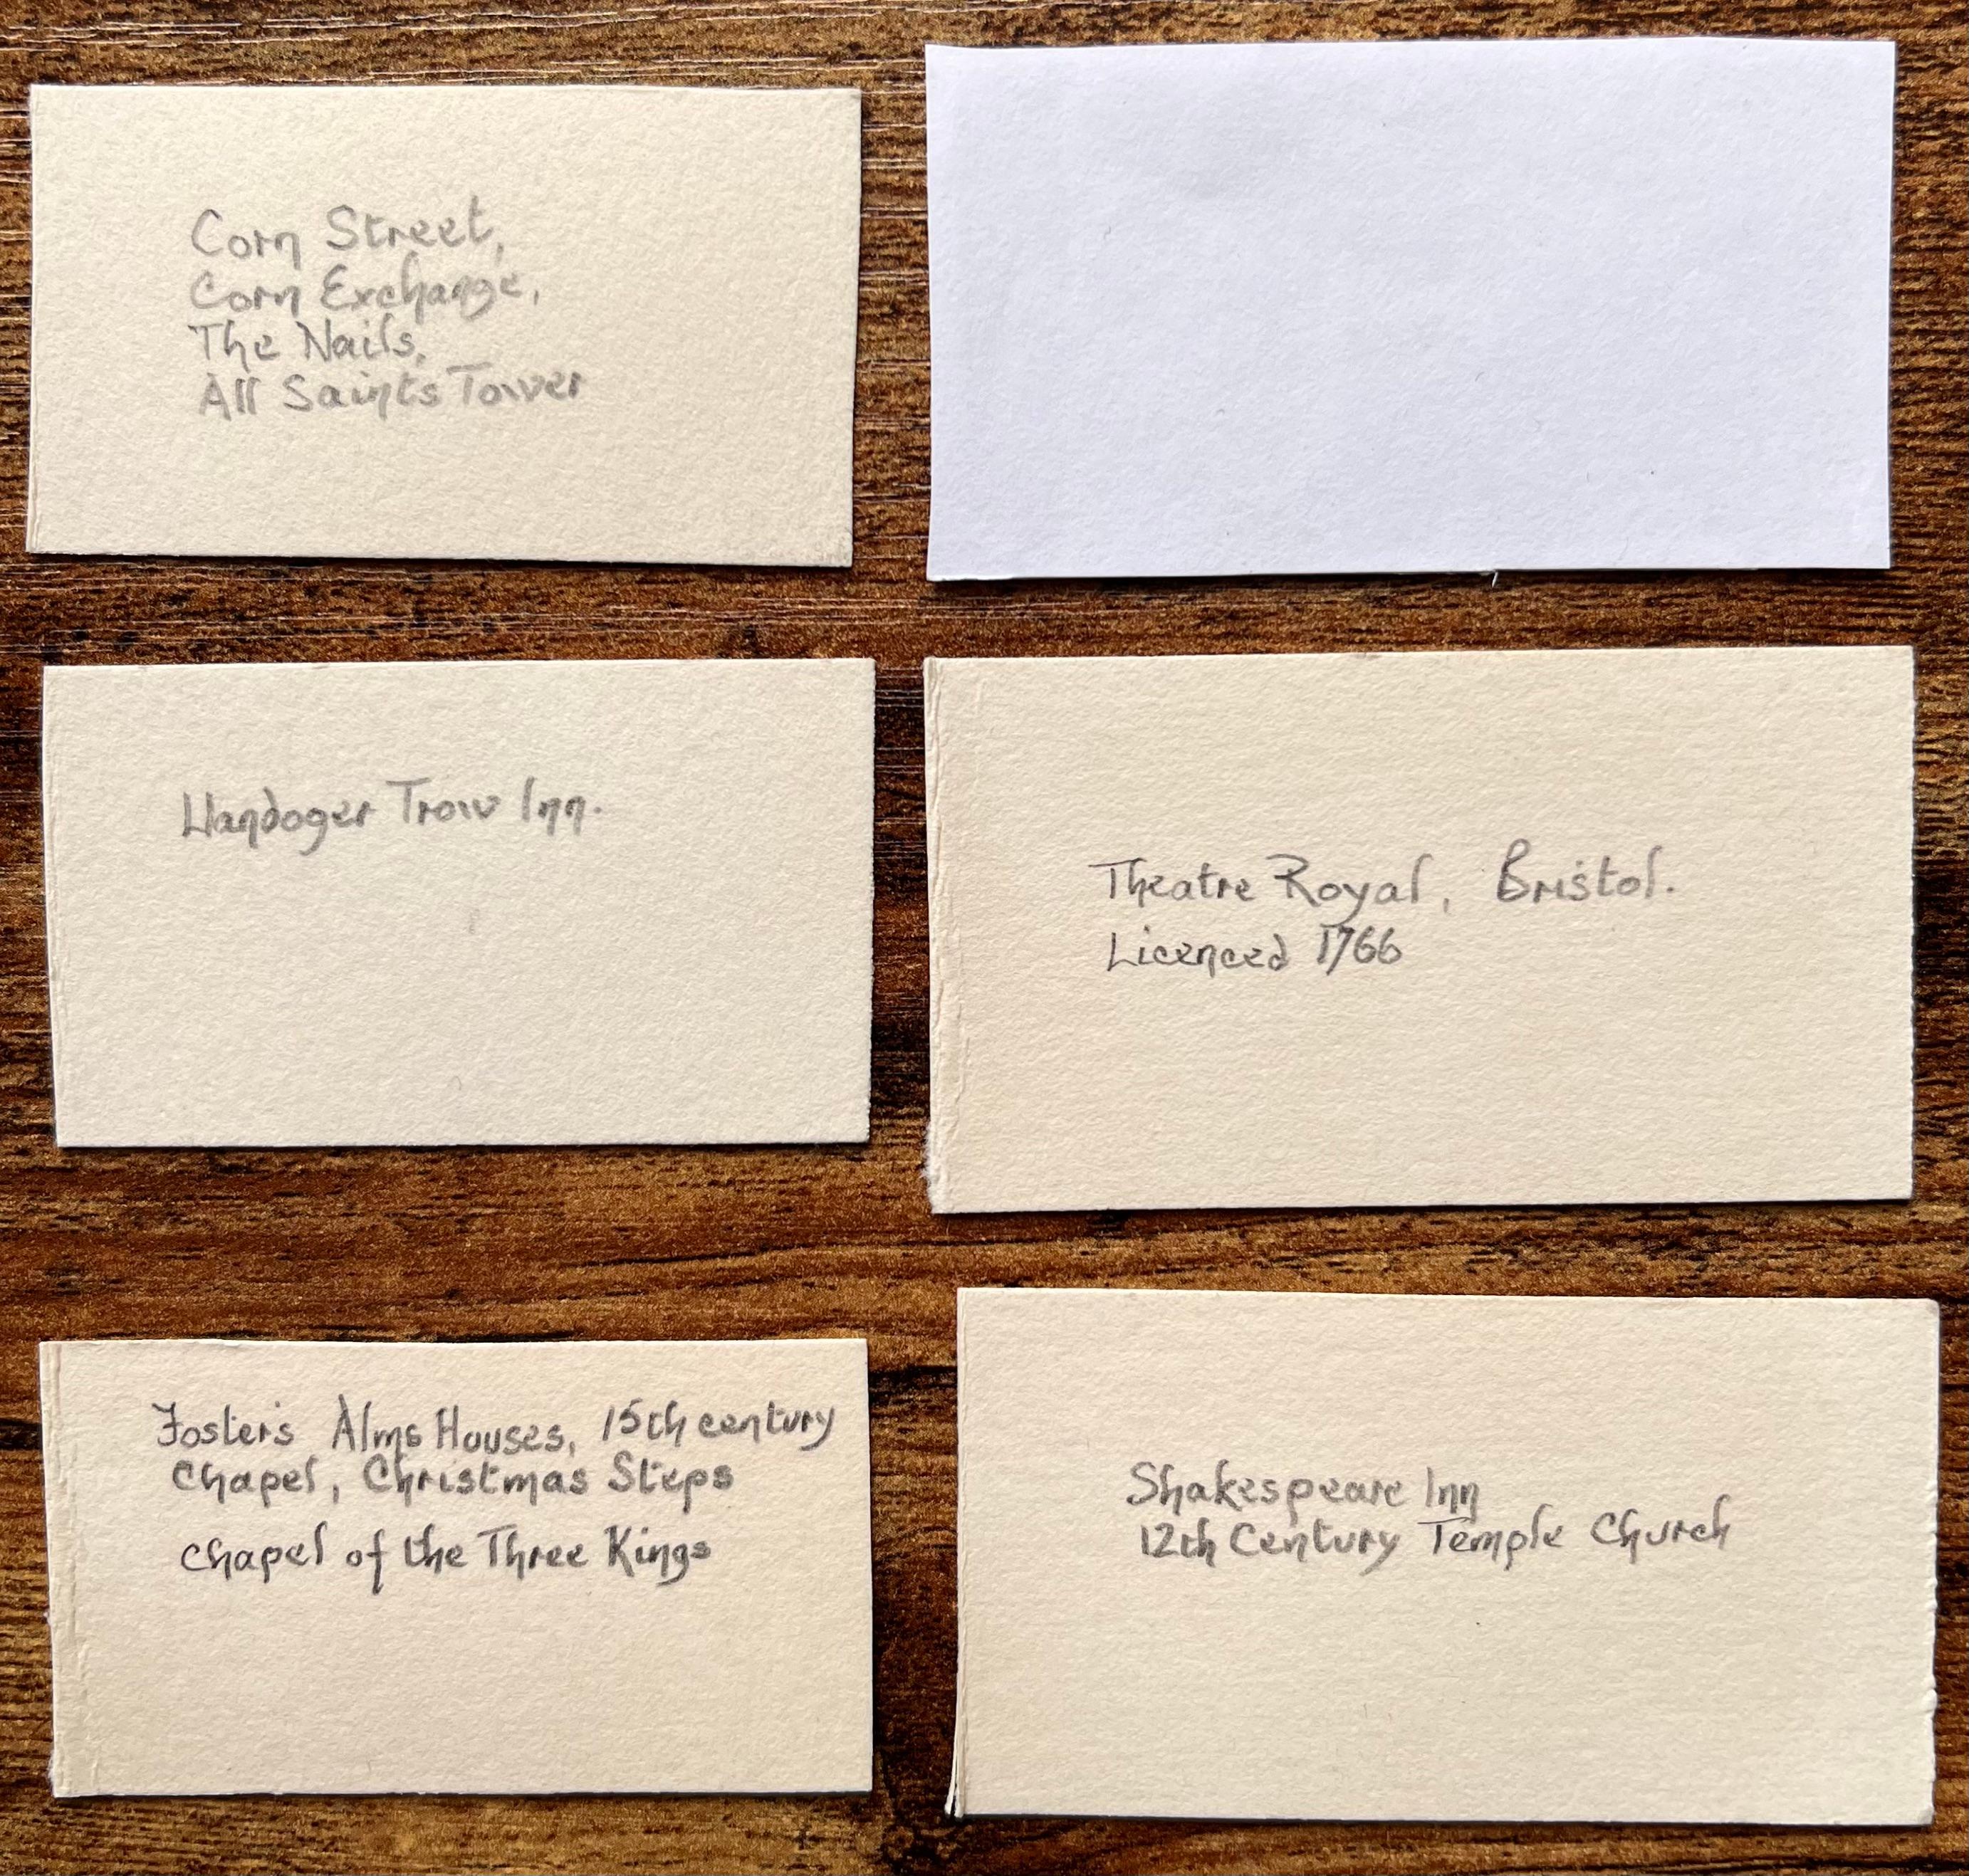 Corn Street,
Corn Exchange,
The Nails,
All Saints Tower
Llandoger Trow Inn.
Theatre Royal, Bristol.
Licenced 1766
Foster's Alms Houses, 15th century
Chapel, Christmas Steps
Chapel of the Three Kings
Shakespeare Inn
12th Century Temple Church